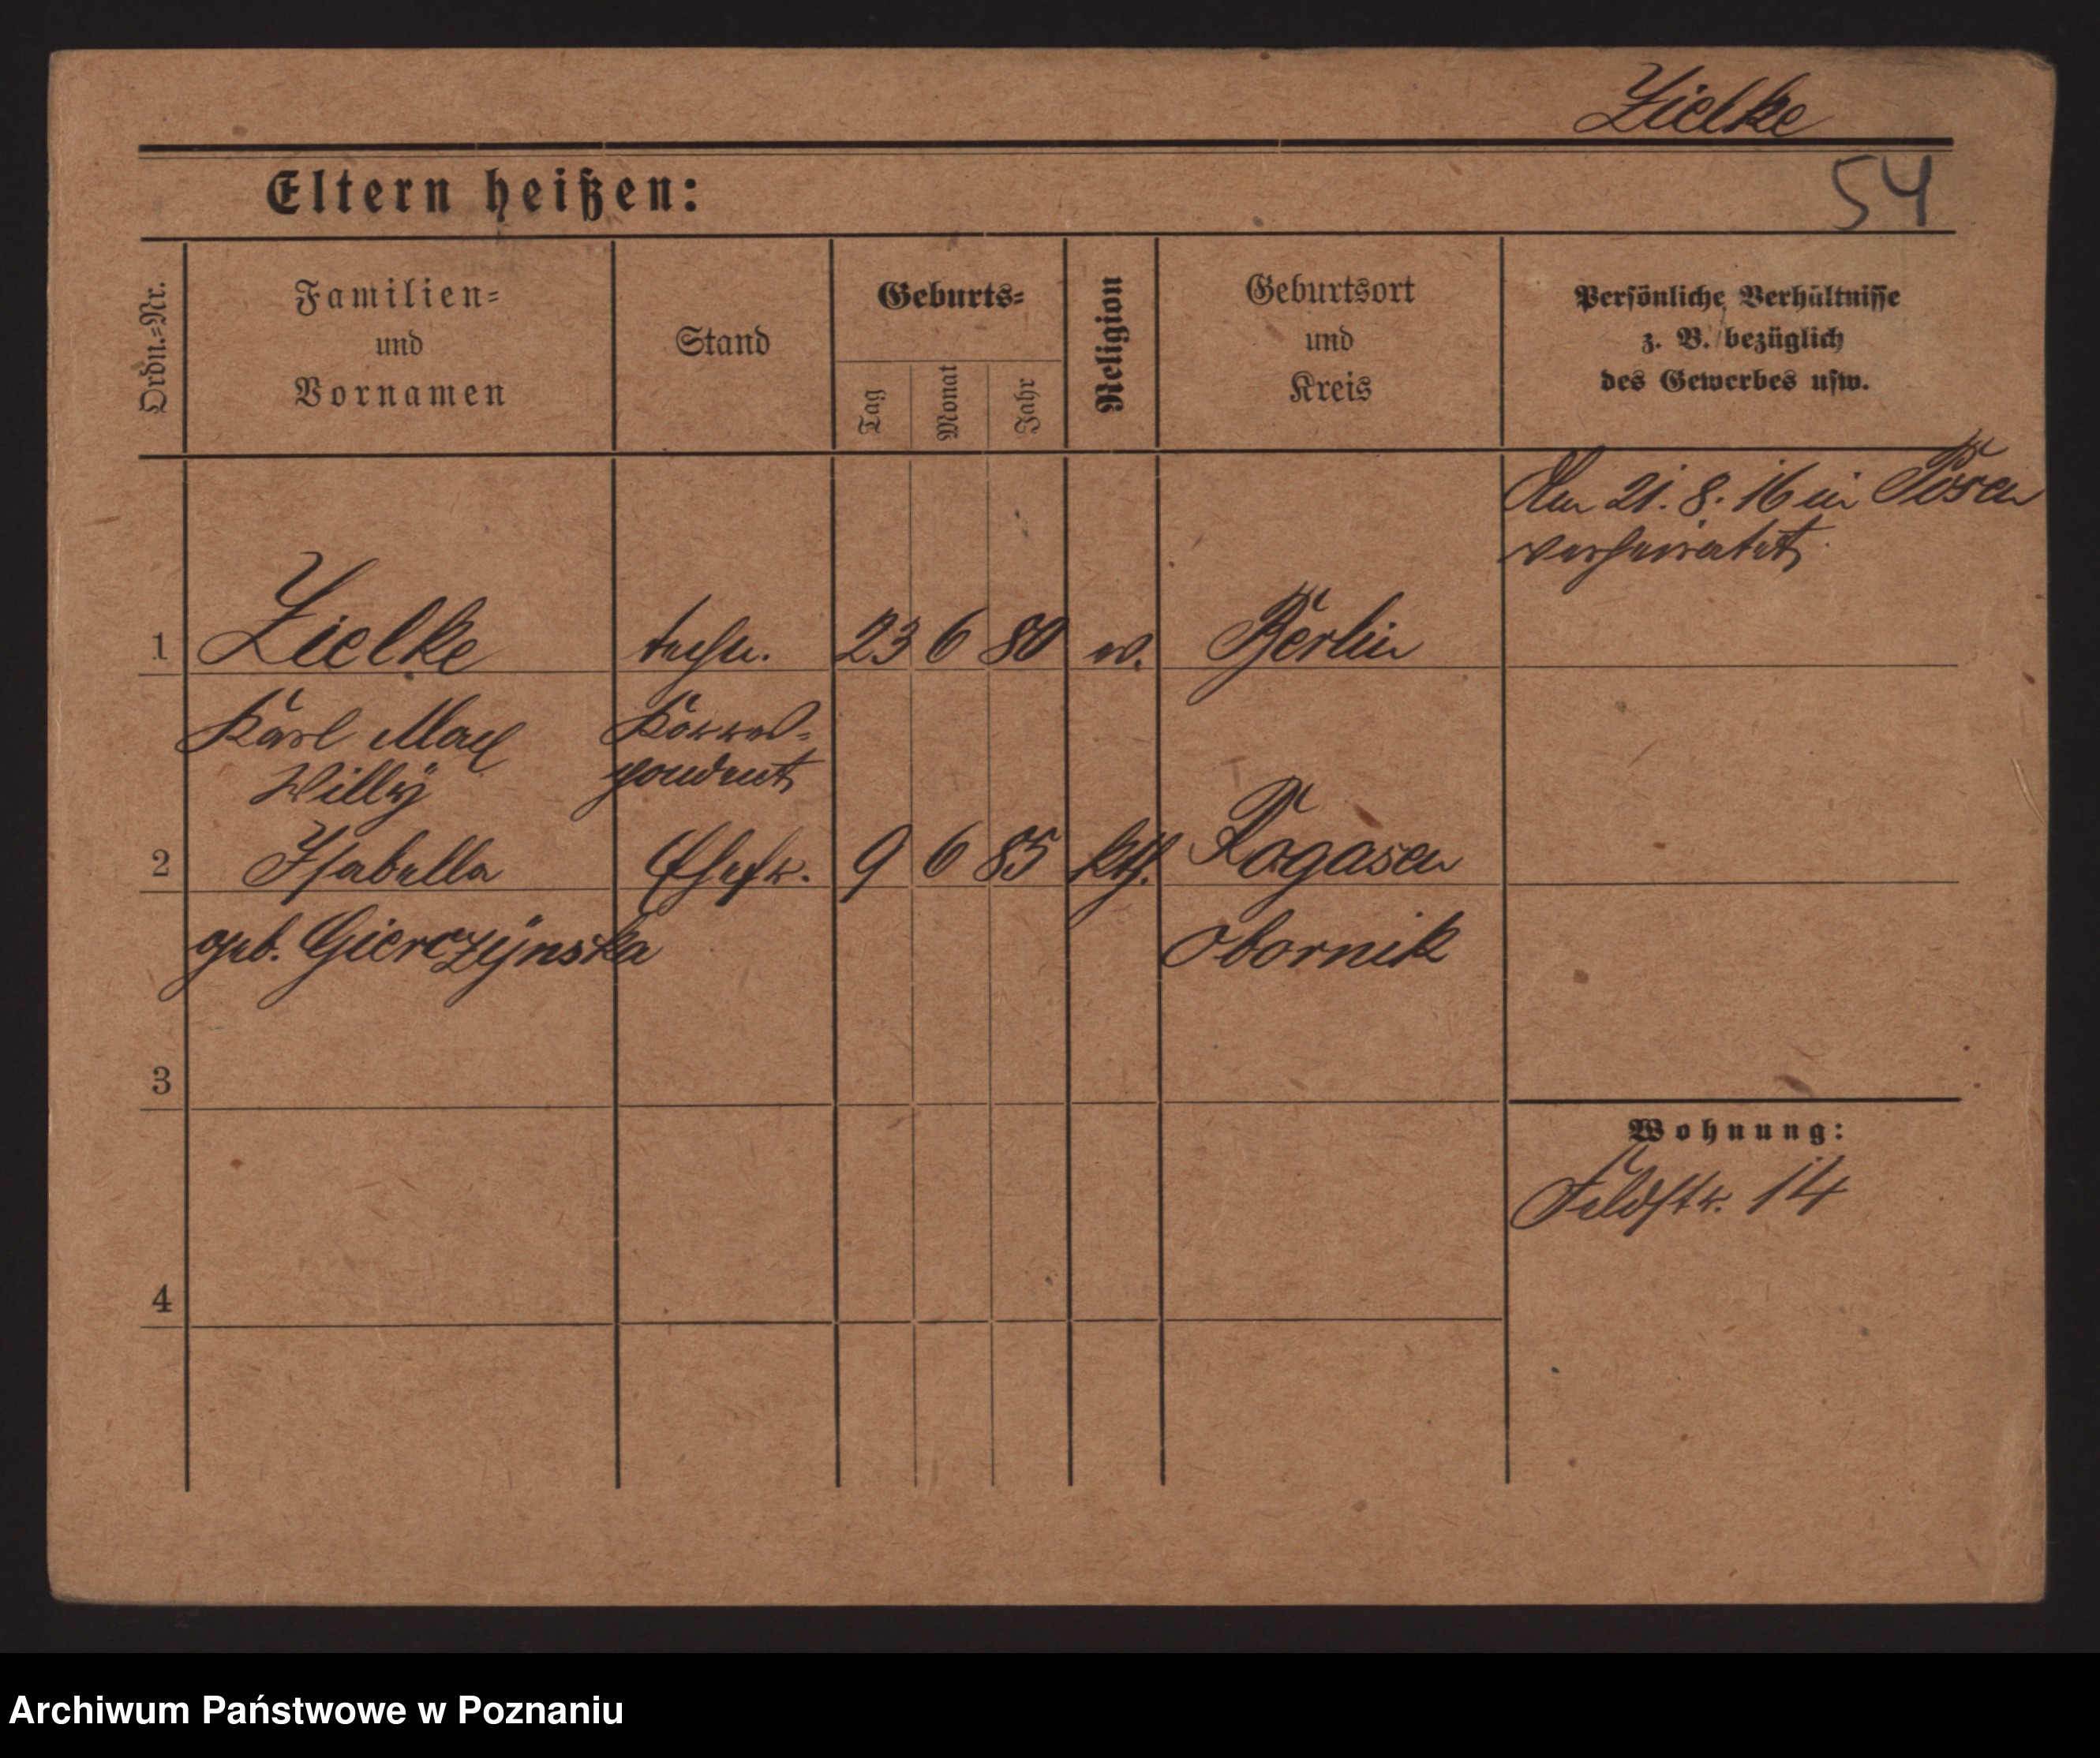 Zielke
Eltern heißen:
54
Ordn.-Nr.
Familien-
und
Vornamen
Stand
Geburts-
Tag
Monat
Jahr
Religion
Geburtsort
und
Kreis
Persönliche Verhältnisse
z. B. bezüglich
des Gewerbes usw.
Am 21. 8. 16 in Posen
verheiratet
1 Zielke techn. 23 6 80 Berlin
Karl Max Korres-
Willÿ pondent
2 Isabella Ehefr. 9 6 85 kth. Rogasen
geb. Gierczÿnska Obornik
3
Wohnung:
Feldstr. 14
4
Archiwum Państwowe w Poznaniu